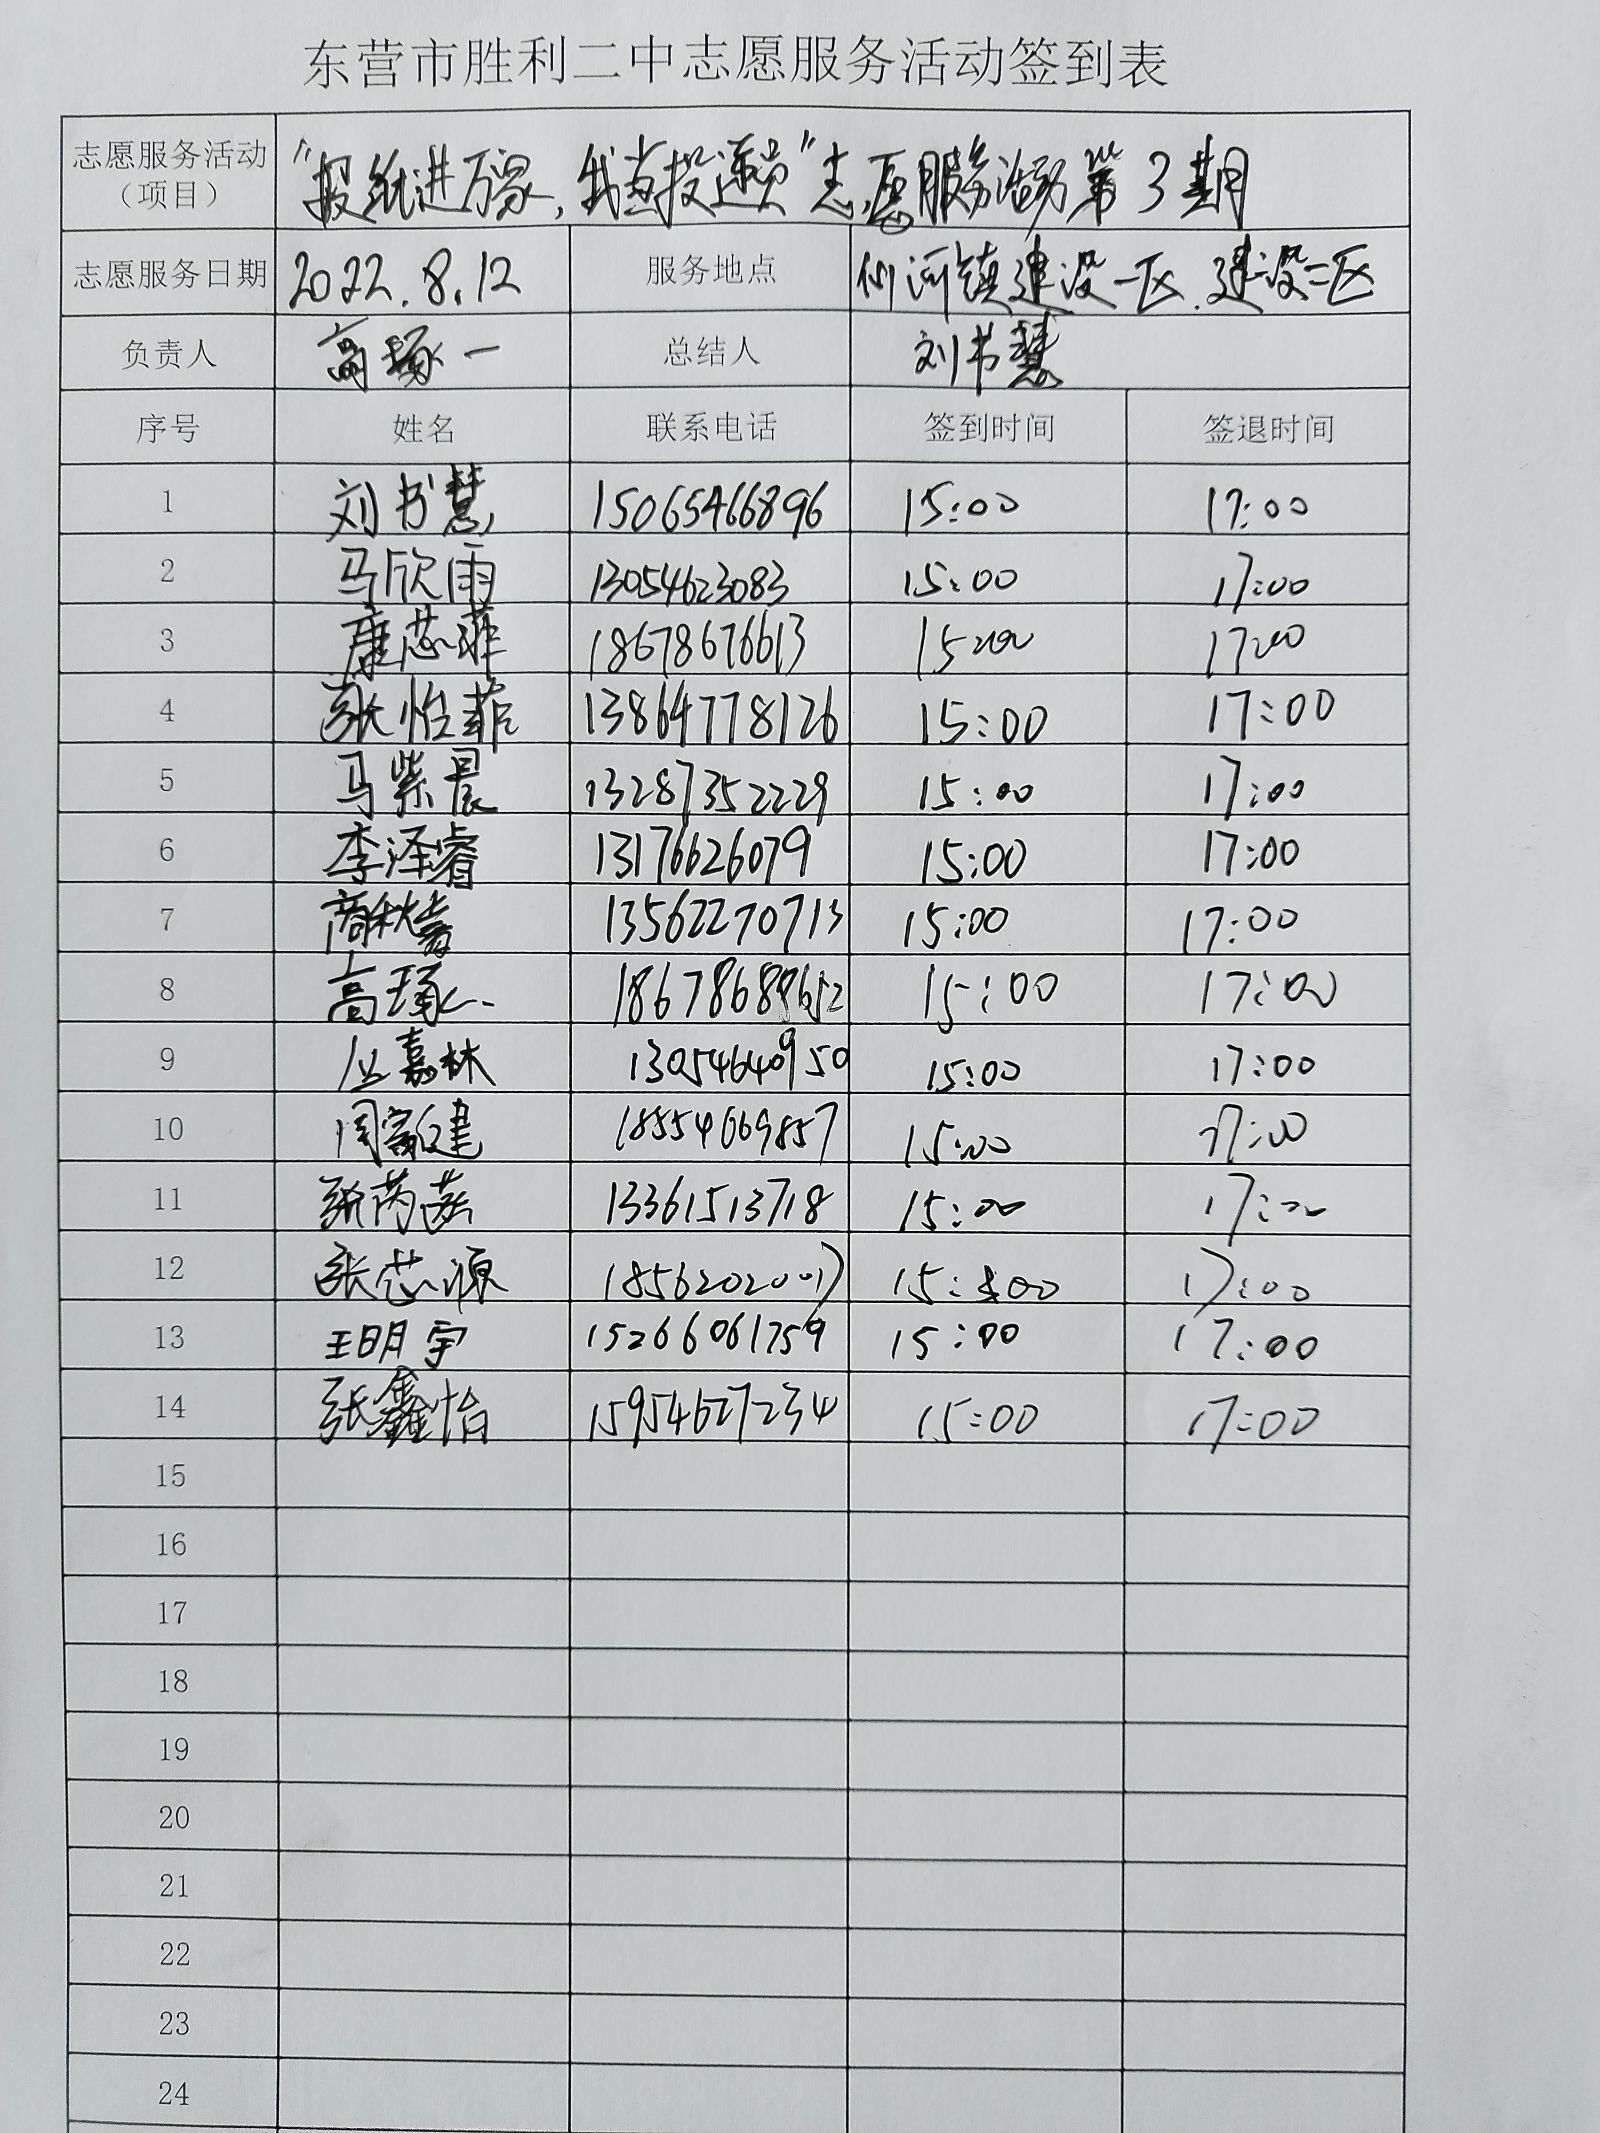 东营市胜利二中志愿服务活动签到表
志愿服务活动（项目） “报纸进万家,我当投递员”志愿服务活动第3期
志愿服务日期 2022.8.12 服务地点 仙河镇建设一区.建设二区
负责人 高琢一 总结人 刘书慧
序号 姓名 联系电话 签到时间 签退时间
1 刘书慧 15065466896 15:00 17:00
2 马欣雨 13054623083 15:00 17:00
3 康芯菲 18678676613 15:00 17:00
4 张怡菲 13864778126 15:00 17:00
5 马紫晨 13287352229 15:00 17:00
6 李泽睿 13176626079 15:00 17:00
7 商秋 13562270713 15:00 17:00
8 高琢一 15:00 17:00
9 丛嘉林 13054640950 15:00 17:00
10 周富建 18554669857 15:00 17:00
11 张芮 13361513718 15:00 17:00
12 张芯源 18562020017 15:00 17:00
13 王明宇 15266061759 15:00 17:00
14 张鑫怡 15954627234 15:00 17:00
15
16
17
18
19
20
21
22
23
24